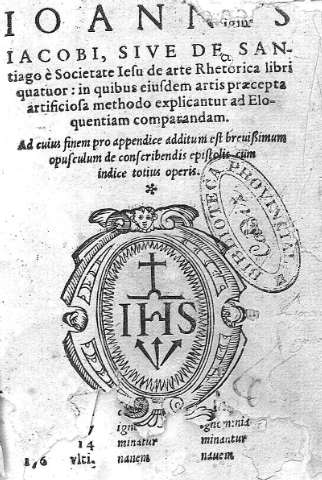 IOANNIS
IACOBI, SIVE DE SAN-
tiago è Societate Iesu de arte Rhetorica libri
quatuor: in quibus eiusdem artis præcepta
artificiosa methodo explicantur ad Elo-
quentiam comparandam.
Ad cuius finem pro appendice additum est breuissimum
opusculum de conscribendis epistolis, cum
indice totius operis.
*
BIBLIOTECA PROVINCIAL
IHS
7
14 minatur minantur
vlti. nauem nauem